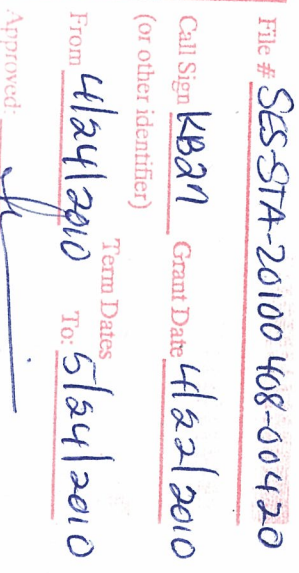 File # SES-STA-20100408-00420
Call Sign KB27 Grant Date 4/22/2010
(or other identifier)
Term Dates
From 4/24/2010 To: 5/24/2010
Approved: